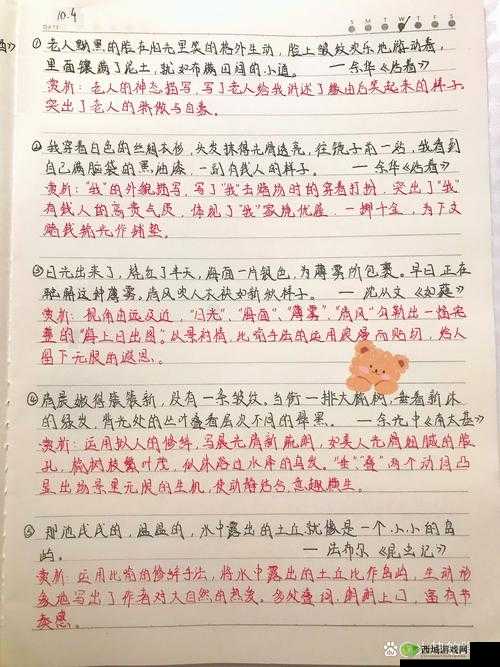 10.4
DATE:
S M T W T F S
①老人黝黑的脸在阳光里笑的格外生动，脸上皱纹欢乐地游动着，
里面镶满了泥土，就如布满田间的小道。 ——余华《活着》
赏析：老人的神态描写，写了老人给我讲述了缘由后笑起来的样子。
突出了老人的和
②我穿着白色的丝绸衣衫，头发抹得光滑透亮，往镜子前一站，我看到
自己满脑袋的黑油漆，一副有钱人的样子。 ——余华《活着》
赏析："我"的外貌描写，写了"我"去赌场时的穿着打扮，突出了"我"
有钱人的高贵气质，体现了"我"家境优渥，一掷千金，为下文
赌钱输光作铺垫。
③日光出来了，烧红了半天，海面一片银色，为薄雾所包裹。早日正在
融解这种薄雾。清风吹人衣袂如新秋样子。 ——沈从文《如蕤》
赏析：视角由远及近，"日光"、"海面"、"薄雾"、"清风"勾勒出一幅完
整的"海上日出图"。从景衬情，比喻手法的运用浪漫而贴切，给人
留下无限的遐思。
④清晨嫩得簇簇新，没有一条皱纹。当街一排大榆树，垂着新沐
的绿发，背光处的丛叶叠着层次不同的绿黑。 ——余光中《南太基》
赏析：运用拟人的修辞，写晨光清新脆朗，如美人光滑细腻的脸
孔，榆树枝繁叶茂，似沐浴过水库的乌发。"垂"、"叠"两个动词凸
显出场景里无限的生机，使动静结合，意趣横生。
⑤那池浅浅的，温温的，水中露出的土丘就像是一个小小的岛
屿。 ——法布尔《昆虫记》
赏析：运用比喻的修辞手法，将水中露出的土丘比作岛屿，生动形
象地写出了作者对大自然的热爱。多处叠词，朗朗上口，富有节
奏感。
西域游戏网